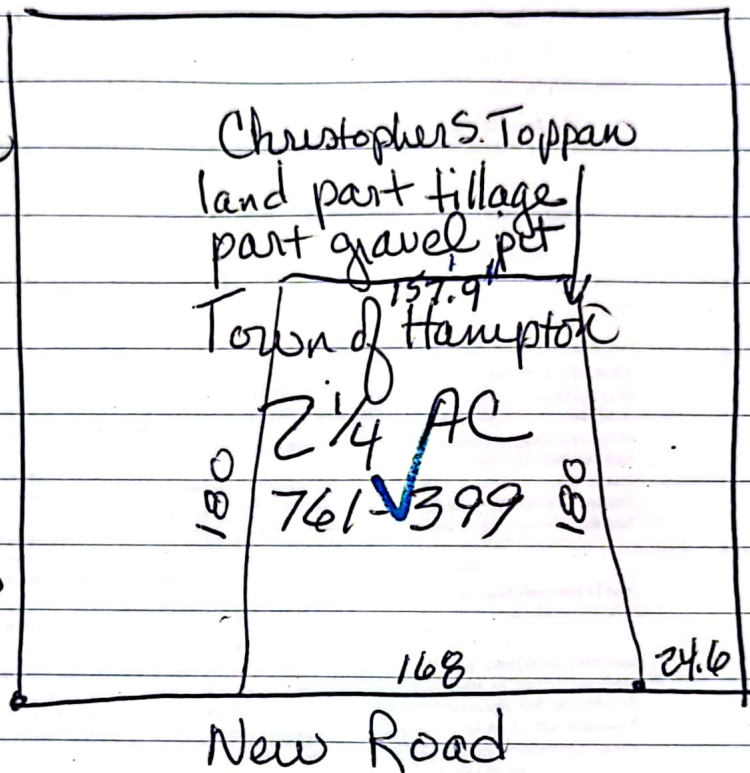 Christopher S. Toppan
land part tillage
part gravel pit
157.9
Town of Hampton
2 1/4 AC
180
761-399
180
168
24.6
New Road